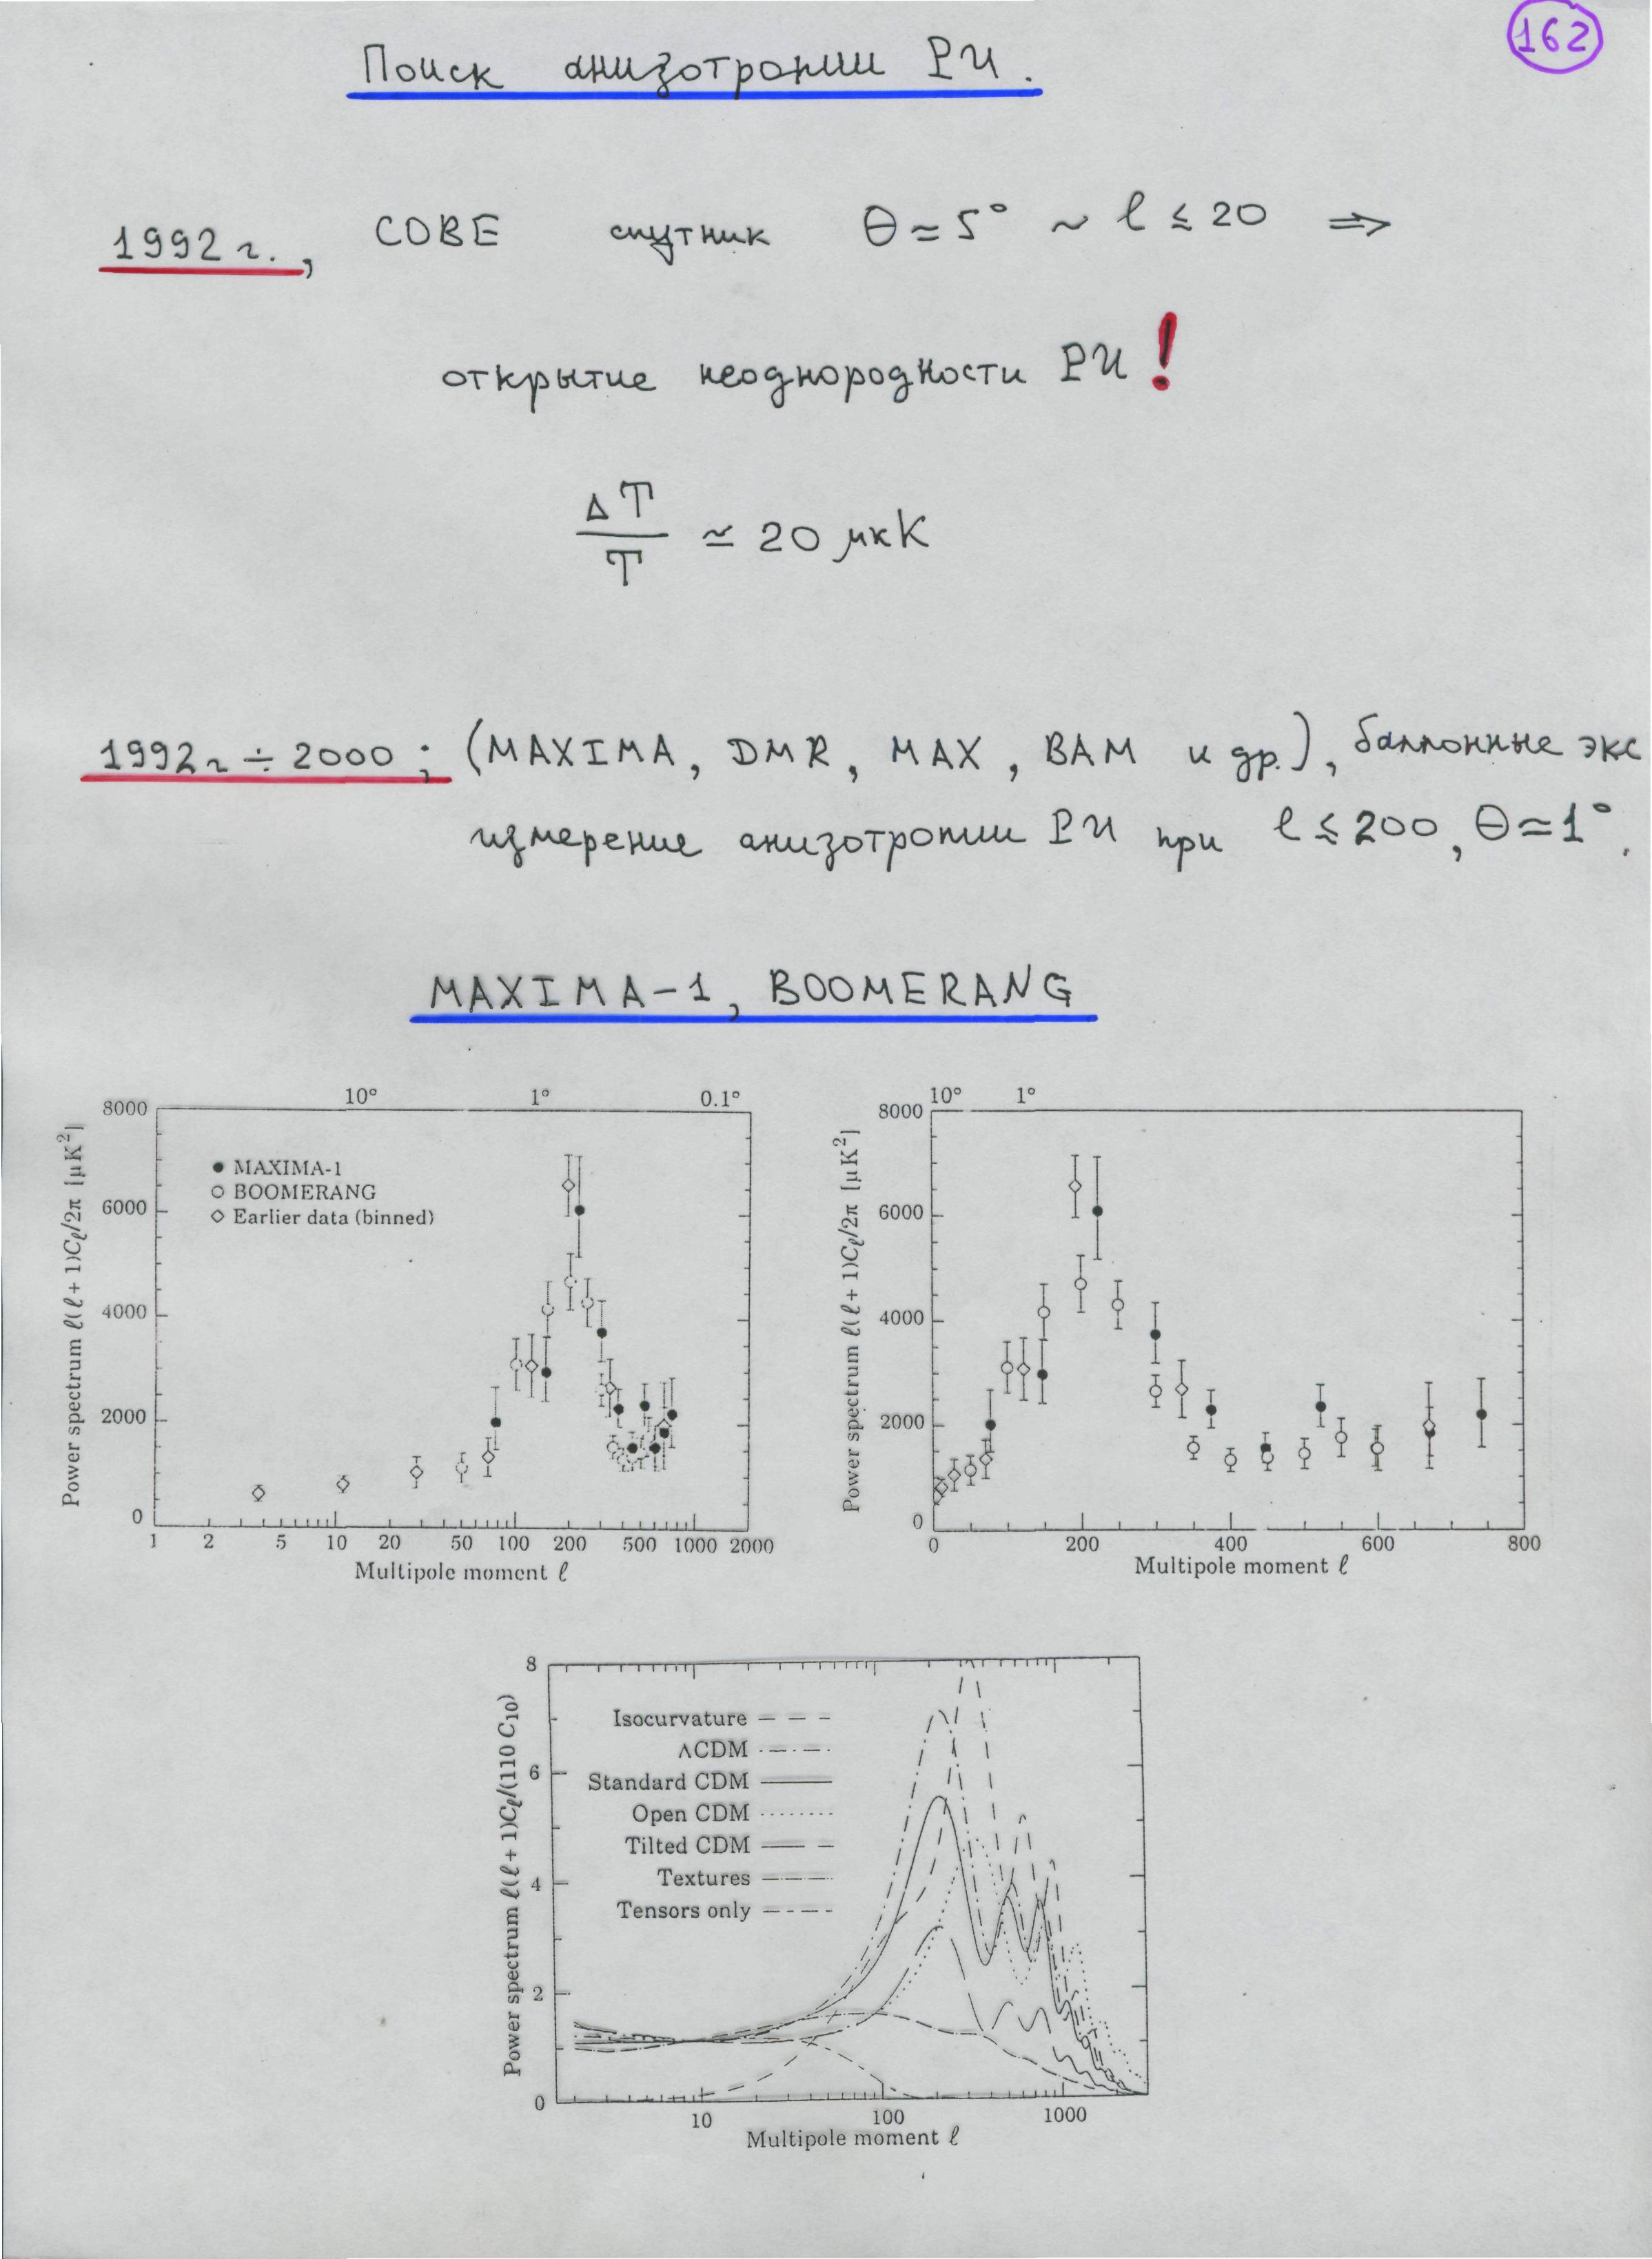 162
Поиск анизотропии РИ.
1992 г., COBE спутник Θ ≃ 5° ~ ℓ ≤ 20 ⇒
открытие неоднородности РИ!
ΔT
T
≃ 20 мкК
1992г ÷ 2000; (MAXIMA, DMR, MAX, BAM и др.), баллонные экс
измерение анизотропии РИ при ℓ ≤ 200, Θ ≃ 1°.
MAXIMA-1, BOOMERANG
10° 1° 0.1°
Power spectrum ℓ(ℓ + 1)Cℓ/2π [μK²]
8000
6000
4000
2000
0
● MAXIMA-1
○ BOOMERANG
◇ Earlier data (binned)
1 2 5 10 20 50 100 200 500 1000 2000
Multipole moment ℓ
10° 1°
Power spectrum ℓ(ℓ + 1)Cℓ/2π [μK²]
8000
6000
4000
2000
0
0 200 400 600 800
Multipole moment ℓ
Power spectrum ℓ(ℓ + 1)Cℓ/(110 C₁₀)
8
6
4
2
0
Isocurvature
ΛCDM
Standard CDM
Open CDM
Tilted CDM
Textures
Tensors only
10 100 1000
Multipole moment ℓ